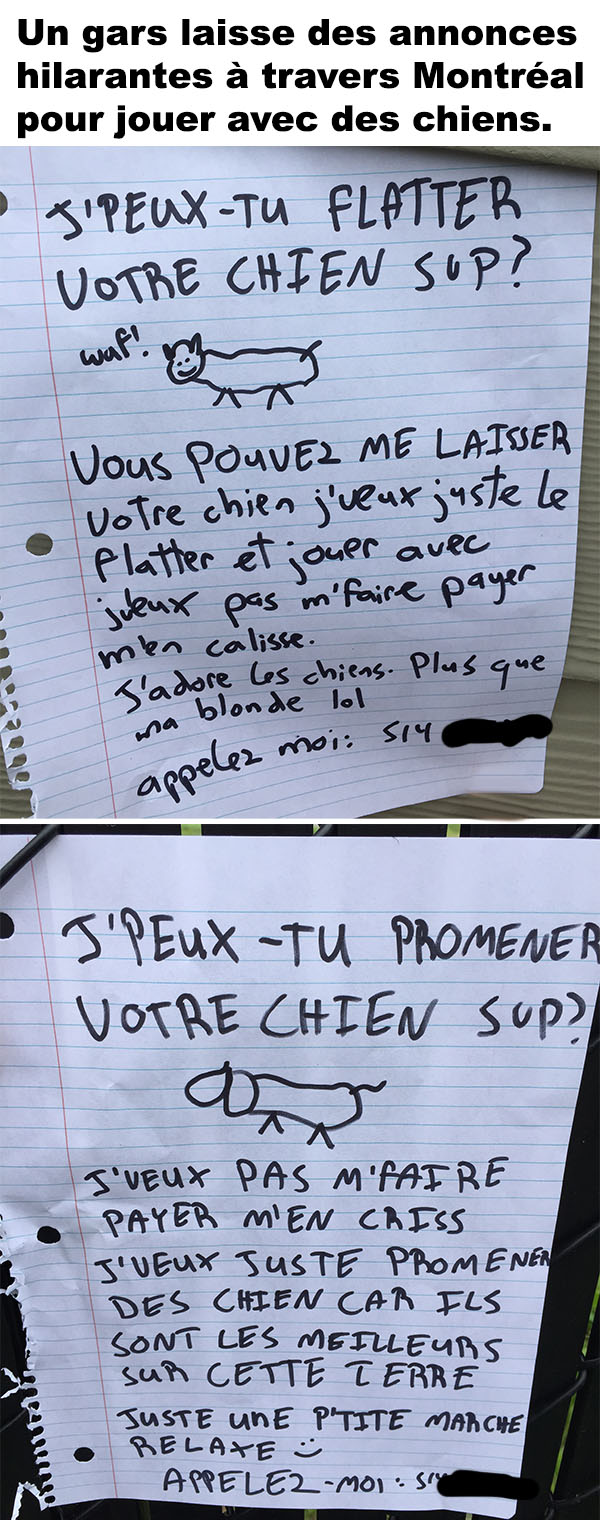 Un gars laisse des annonces
hilarantes à travers Montréal
pour jouer avec des chiens.
J'PEUX-TU FLATTER
VOTRE CHIEN SVP?
waf!
Vous POUVEZ ME LAISSER
votre chien j'veux juste le
flatter et jouer avec
jveux pas m'faire payer
m'en calisse.
J'adore les chiens. Plus que
ma blonde lol
appelez moi: 514
J'PEUX-TU PROMENER
VOTRE CHIEN SVP?
J'VEUX PAS M'FAIRE
PAYER M'EN CRISS
J'VEUX JUSTE PROMENER
DES CHIEN CAR ILS
SONT LES MEILLEURS
SUR CETTE TERRE
JUSTE UNE P'TITE MARCHE
RELAXE :)
APPELEZ-MOI: 514